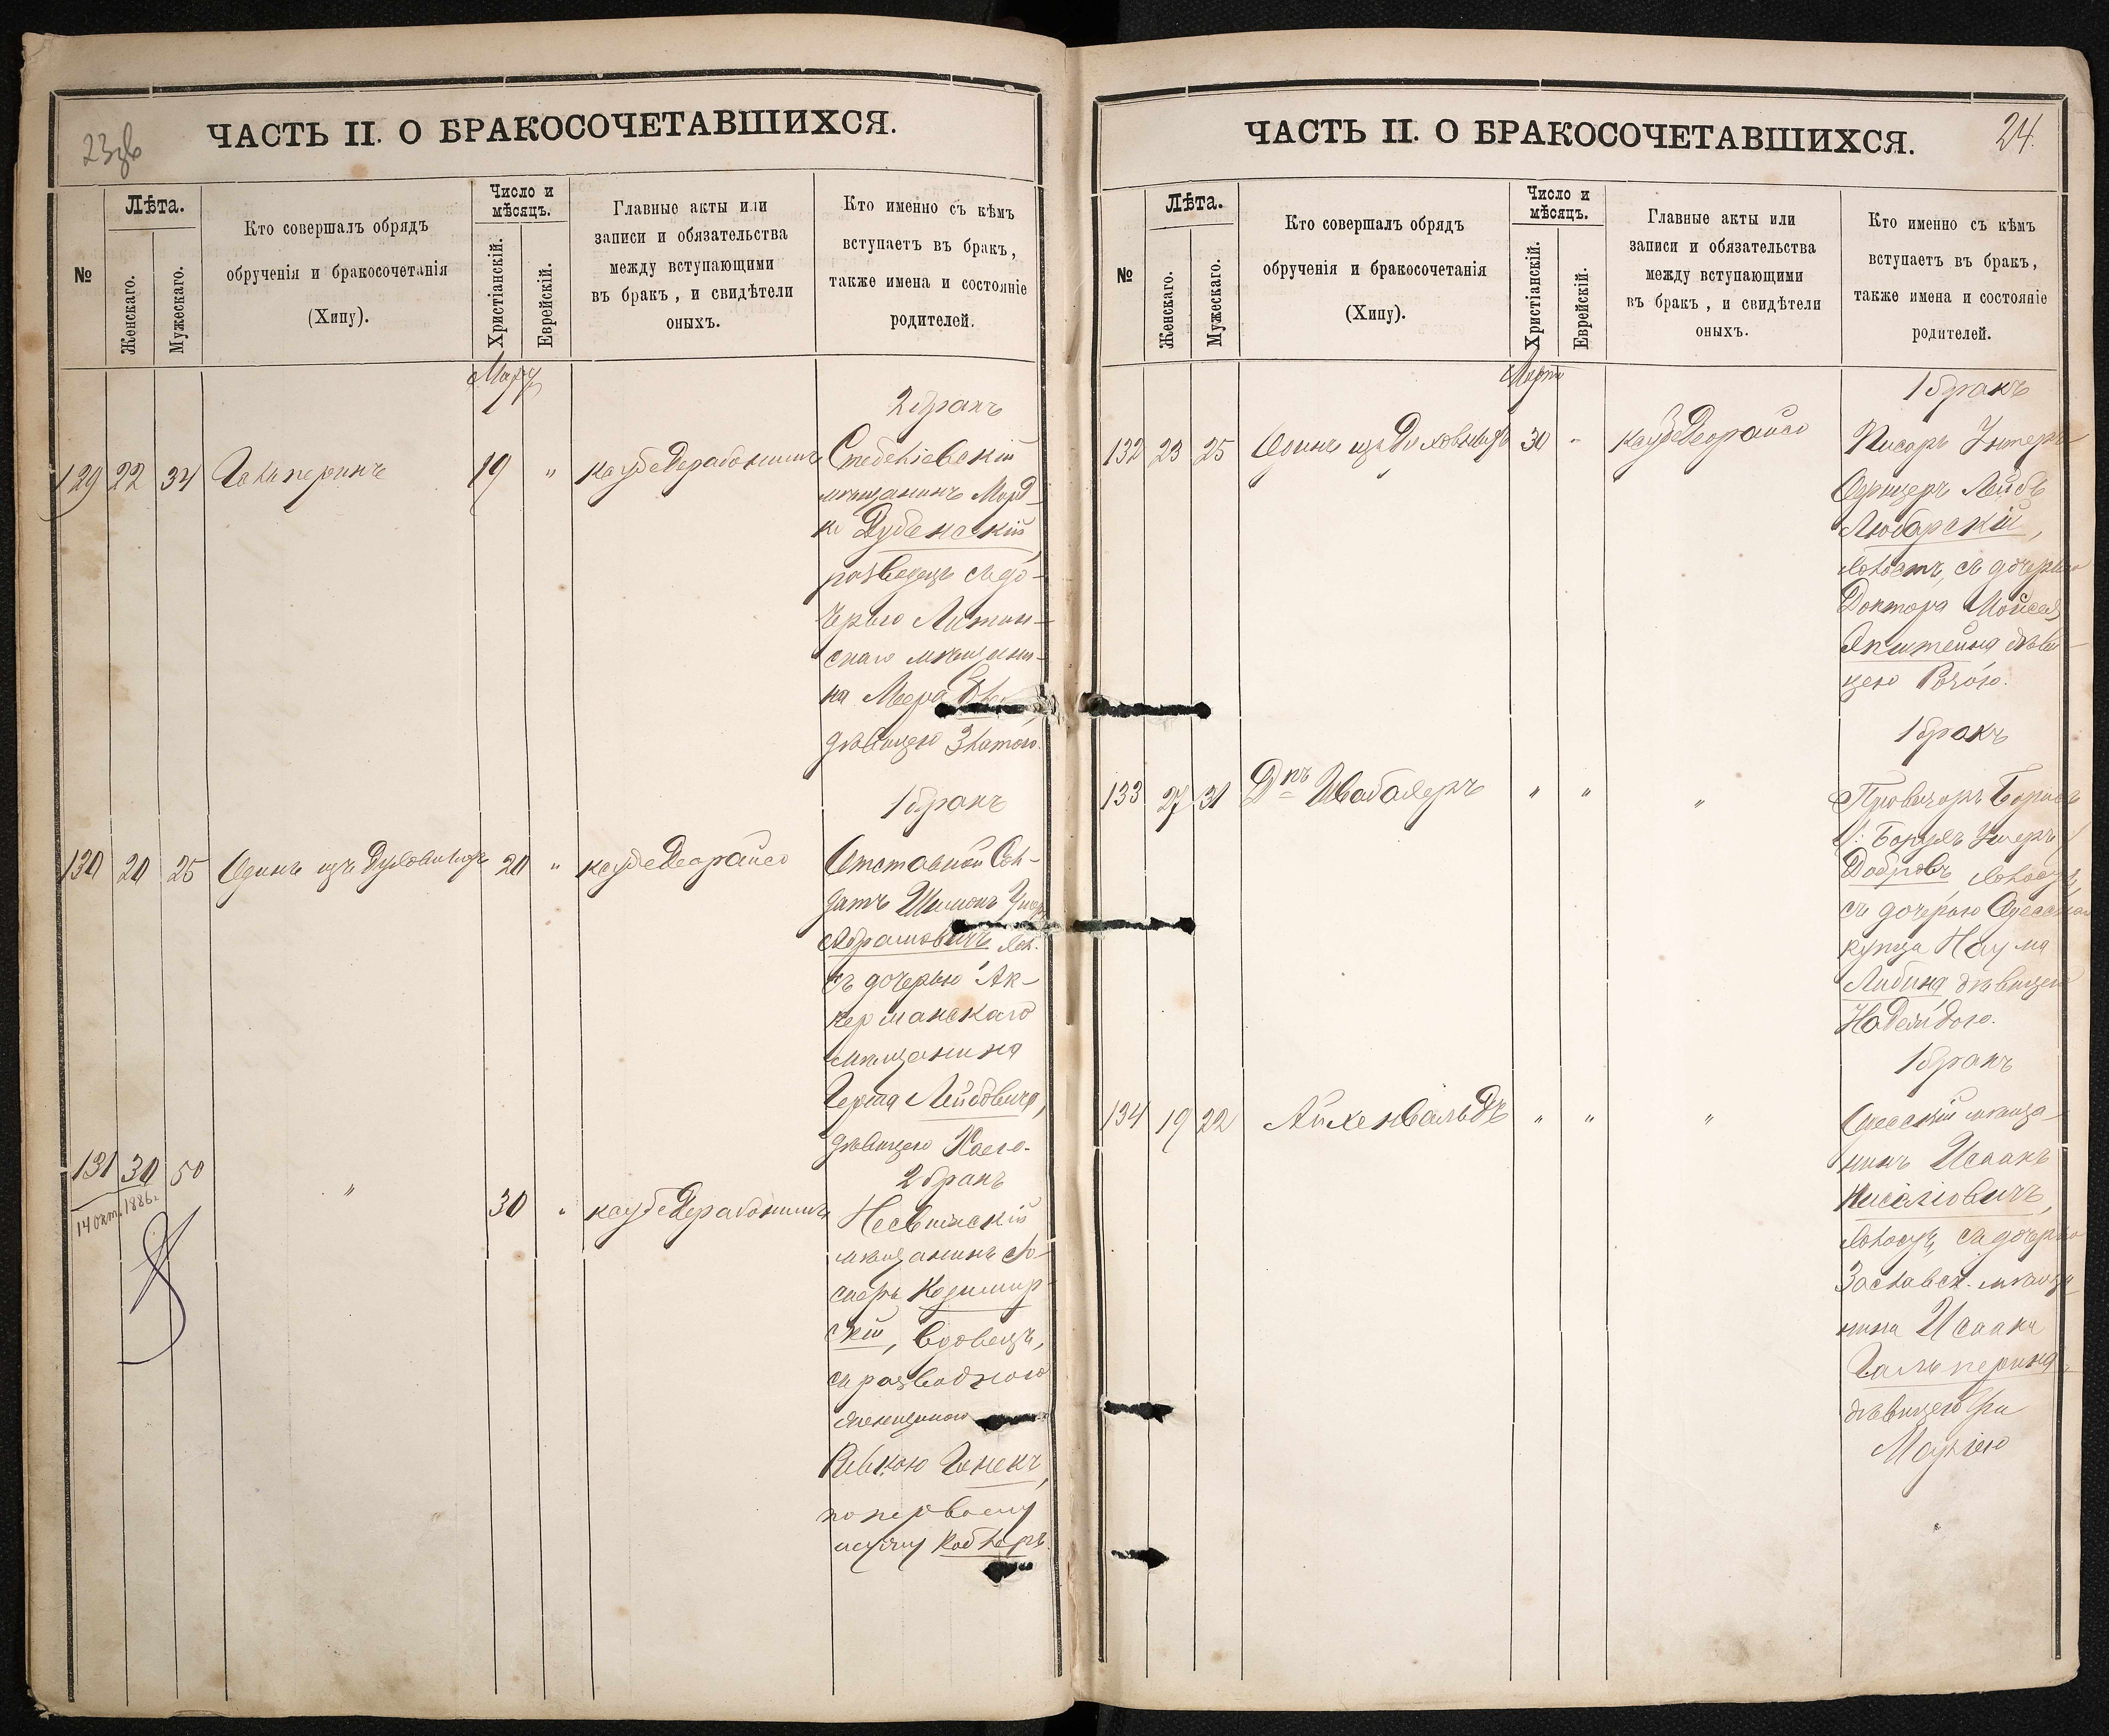 23зв
ЧАСТЬ II. О БРАКОСОЧЕТАВШИХСЯ.
№
Лѣта.
Женскаго.
Мужескаго.
Кто совершалъ обрядъ
обрученія и бракосочетанія
(Хипу).
Число и
мѣсяцъ.
Христіанскій.
Еврейскій.
Главные акты или
записи и обязательства
между вступающими
въ бракъ, и свидѣтели
оныхъ.
Кто именно съ кѣмъ
вступаетъ въ бракъ,
также имена и состояніе
родителей.
2 бракъ
129 22 34 Гальперинъ 19 "
мѣщанинъ Морд-
ко Дубенскій,
разведецъ съ до-
черью Литин-
скаго мѣщани-
на Меера
дѣвицею Златою.
1 бракъ
130 20 25 Одинъ изъ Духовныхъ 20 "
Отставной Сол-
датъ Шимонъ
Абрамовичъ хол.
съ дочерью Ак-
керманскаго
мѣщанина
Герша Лейбовича,
дѣвицею Хаею.
2 бракъ
131 30 50 " 30 "
14 окт. 1886г.
Несвижскій
мѣщанинъ Іо-
сифъ Казимир-
скій, вдовецъ,
съ разводною
женщиною
Ривкою Генекъ,
по первому
мужу
24.
ЧАСТЬ II. О БРАКОСОЧЕТАВШИХСЯ.
№
Лѣта.
Женскаго.
Мужескаго.
Кто совершалъ обрядъ
обрученія и бракосочетанія
(Хипу).
Число и
мѣсяцъ.
Христіанскій.
Еврейскій.
Главные акты или
записи и обязательства
между вступающими
въ бракъ, и свидѣтели
оныхъ.
Кто именно съ кѣмъ
вступаетъ въ бракъ,
также имена и состояніе
родителей.
Марта
1 бракъ
132 23 25 Одинъ изъ Духовныхъ 30 "
Писарь Унтеръ-
Офицеръ Лейбъ
Любарскій,
холостъ, съ дочерью
Доктора Мойсея
Эпштейна дѣви-
цею Розою.
1 бракъ
133 27 31 Дръ Швабахеръ " " "
Провизоръ Борисъ
Добровъ, холостъ,
съ дочерью Одесскаго
купца Наума
Либина дѣвицею
Надеждою.
1 бракъ
134 19 22 Айхенвальдъ " " "
Одесскій мѣща-
нинъ Исаакъ
Кисилiовичъ,
холостъ, съ дочерью
Заславск. мѣща-
нина Исаака
Гальперина
дѣвицею
Маріею